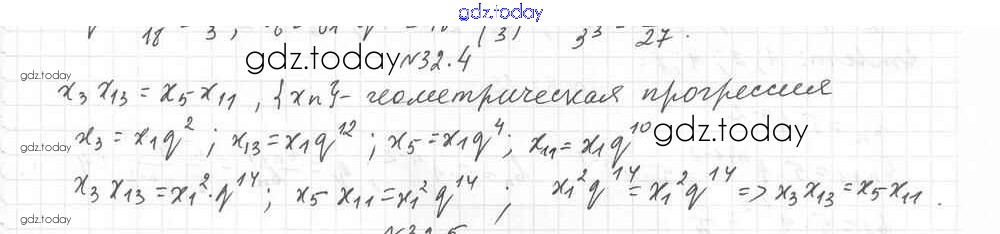 gdz.today
18 = 3 ; 3³ = 27.
gdz.today №32.4
gdz.today
x₃ x₁₃ = x₅ x₁₁ , {xn} - геометрическая прогрессия
x₃ = x₁q² ; x₁₃ = x₁q¹² ; x₅ = x₁q⁴ ; x₁₁ = x₁q¹⁰ gdz.today
gdz.today
x₃ x₁₃ = x₁² · q¹⁴ ; x₅ x₁₁ = x₁² q¹⁴ ; x₁² q¹⁴ = x₁² q¹⁴ => x₃ x₁₃ = x₅ x₁₁ .
gdz.today